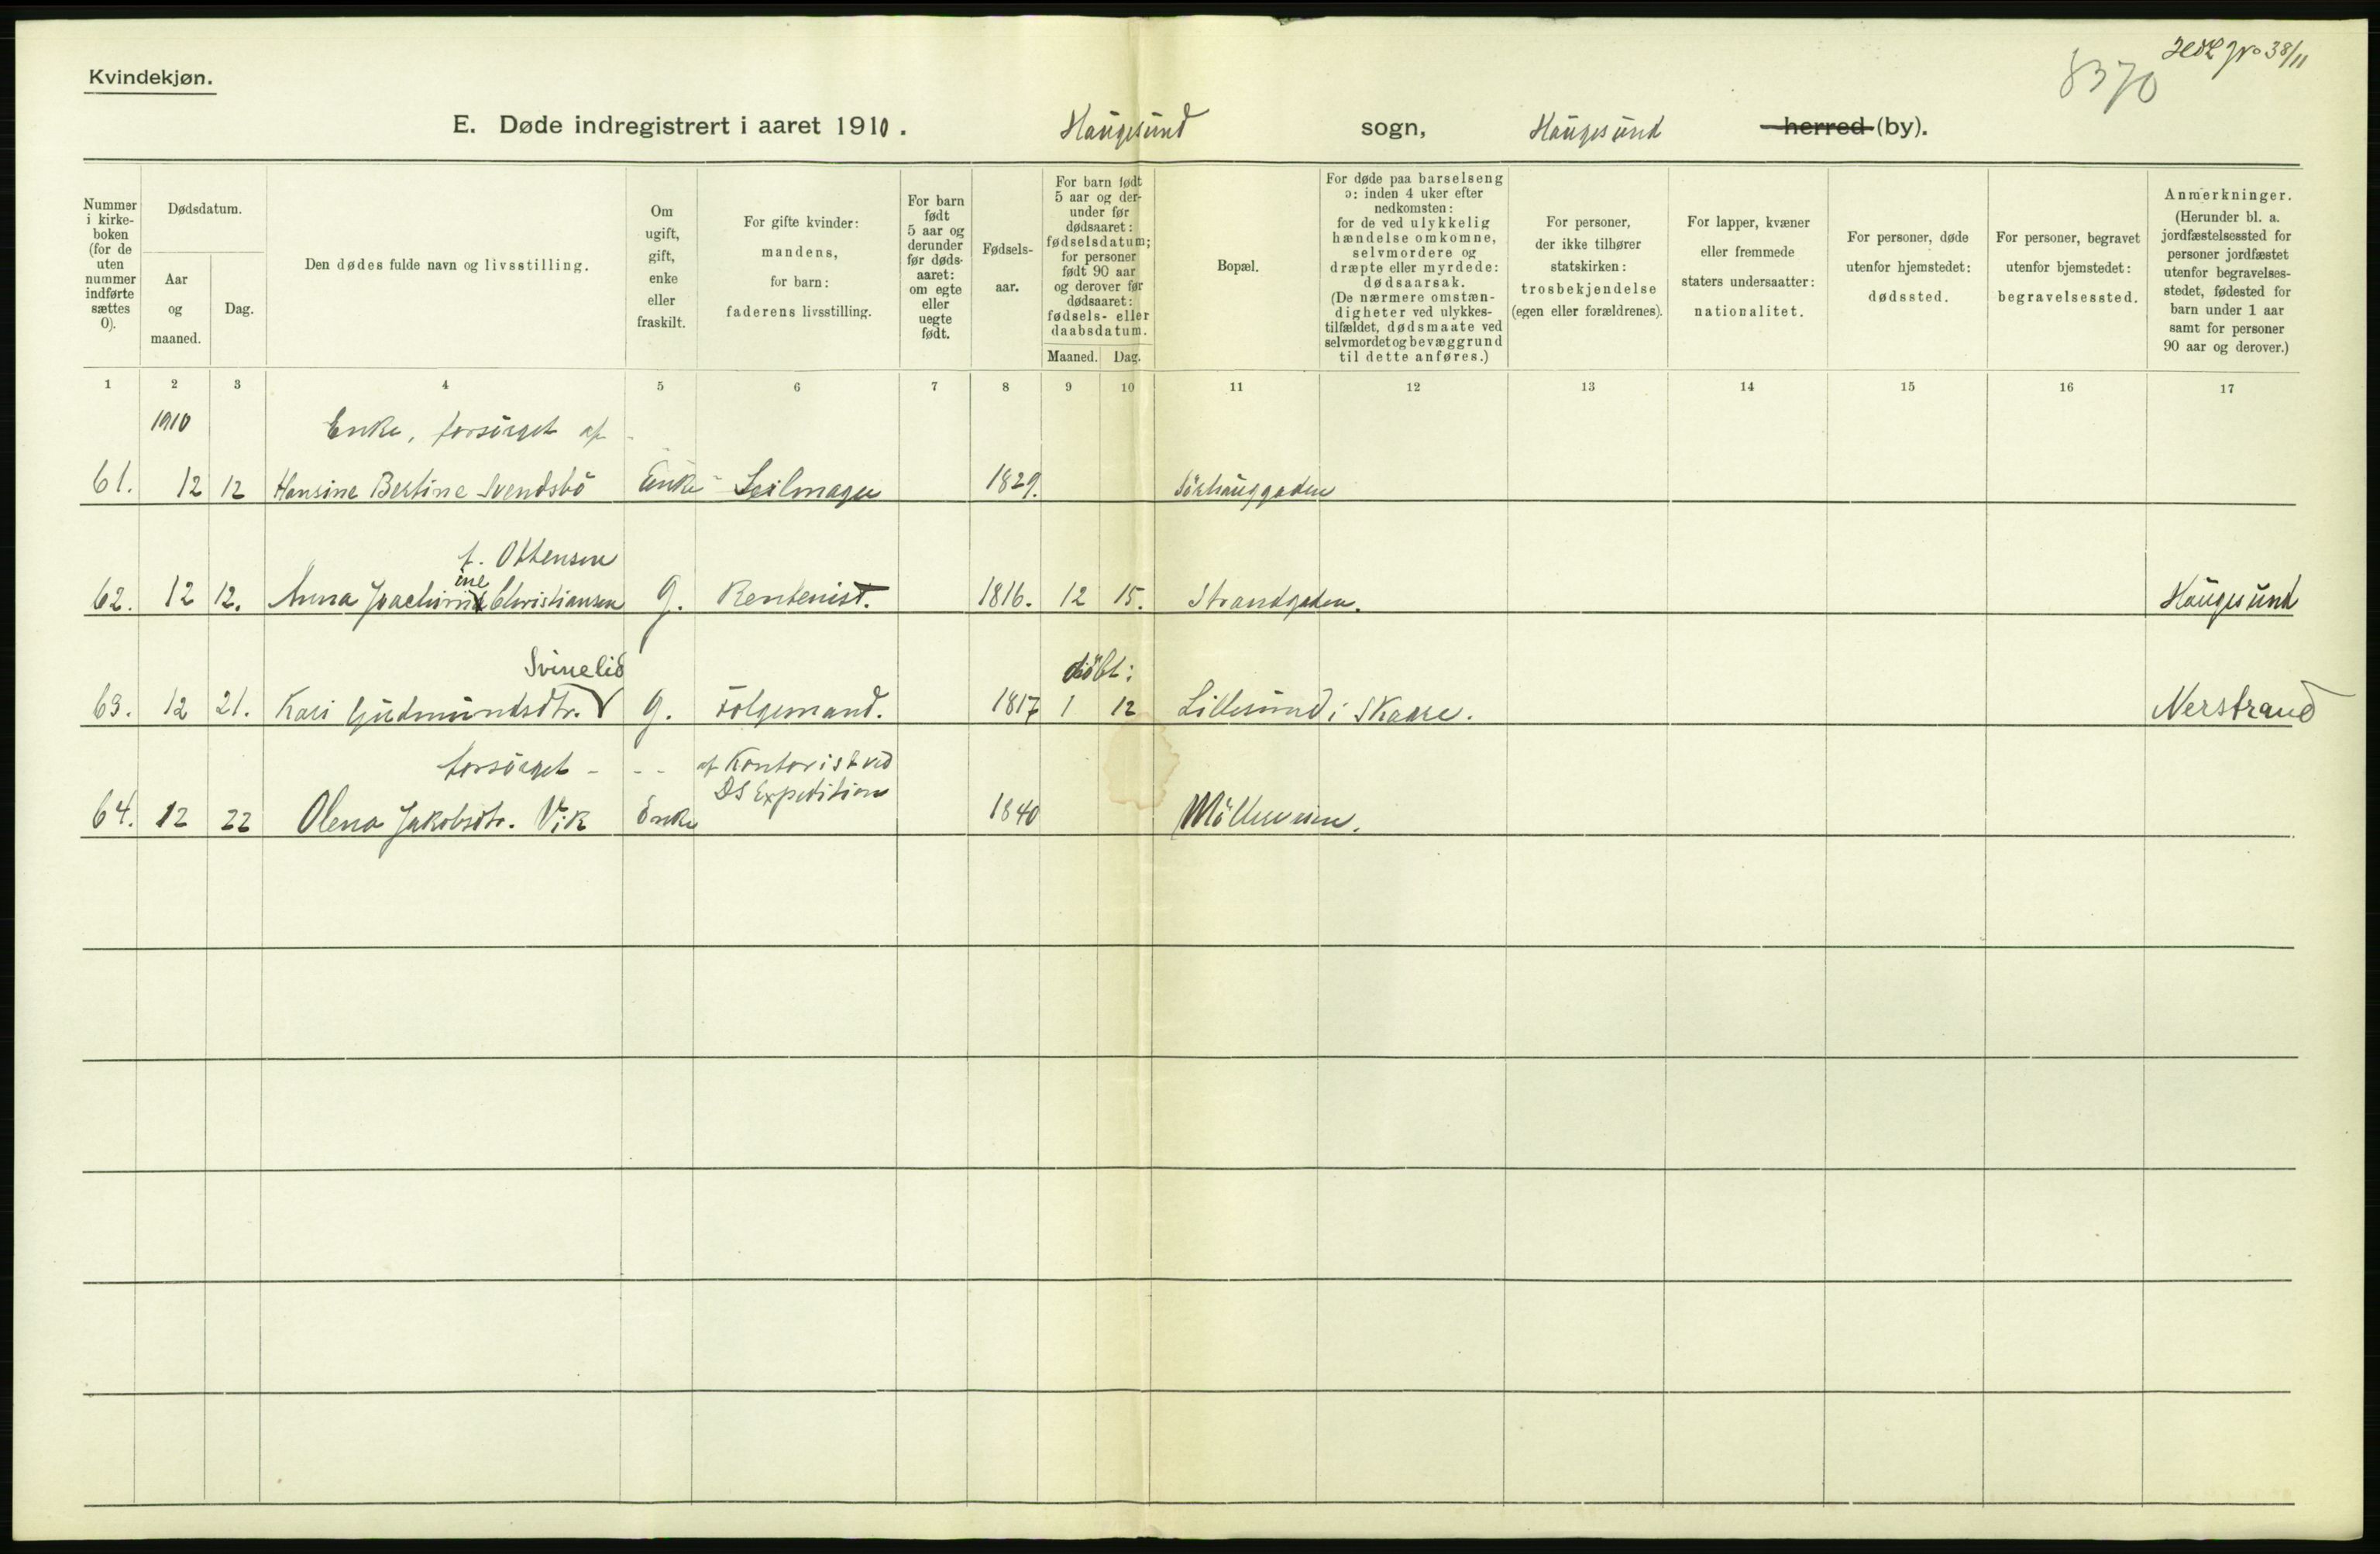 Kvindekjøn.
8370
No 38/11
E. Døde indregistrert i aaret 1910. Haugesund sogn, Haugesund herred (by).
Nummer i kirke-boken (for de uten nummer indførte sættes 0).
Dødsdatum.
Aar og maaned.
Dag.
Den dødes fulde navn og livsstilling.
Om ugift, gift, enke eller fraskilt.
For gifte kvinder: mandens, for barn: faderens livsstilling.
For barn født 5 aar og derunder før døds-aaret: om egte eller uegte født.
Fødsels-aar.
For barn født 5 aar og der-under før dødsaaret: fødselsdatum; for personer født 90 aar og derover før dødsaaret: fødsels- eller daabsdatum.
Maaned. Dag.
Bopæl.
For døde paa barselseng ɔ: inden 4 uker efter nedkomsten: for de ved ulykkelig hændelse omkomne, selvmordere og dræpte eller myrdede: dødsaarsak. (De nærmere omstæn-digheter ved ulykkes-tilfældet, dødsmaate ved selvmordet og bevæggrund til dette anføres.)
For personer, der ikke tilhører statskirken: trosbekjendelse (egen eller forældrenes).
For lapper, kvæner eller fremmede staters undersaatter: nationalitet.
For personer, døde utenfor hjemstedet: dødssted.
For personer, begravet utenfor bjemstedet: begravelsessted.
Anmerkninger. (Herunder bl. a. jordfæstelsessted for personer jordfæstet utenfor begravelses-stedet, fødested for barn under 1 aar samt for personer 90 aar og derover.)
1 2 3 4 5 6 7 8 9 10 11 12 13 14 15 16 17
1910 Enke, forsörget af -
61. 12 12 Hansine Bertine Svendsbö Enke - Seilmager 1829. Sörhauggaden
f. Ottensen
ine
62. 12 12. Anna Joachimi Christiansen g. Rentenist. 1816. 12 15. Strandgaden. Haugesund
Svinelid döbt:
63. 12 21. Kari Gudmundsdtr. g. Folgemand. 1817 1 12 Lillesund i Skaare. Nerstrand
forsörget - - - af Kontorist ved
DS Expedition
64. 12 22 Olena Jakobsdtr. Vik Enke 1840 Möllerveien.